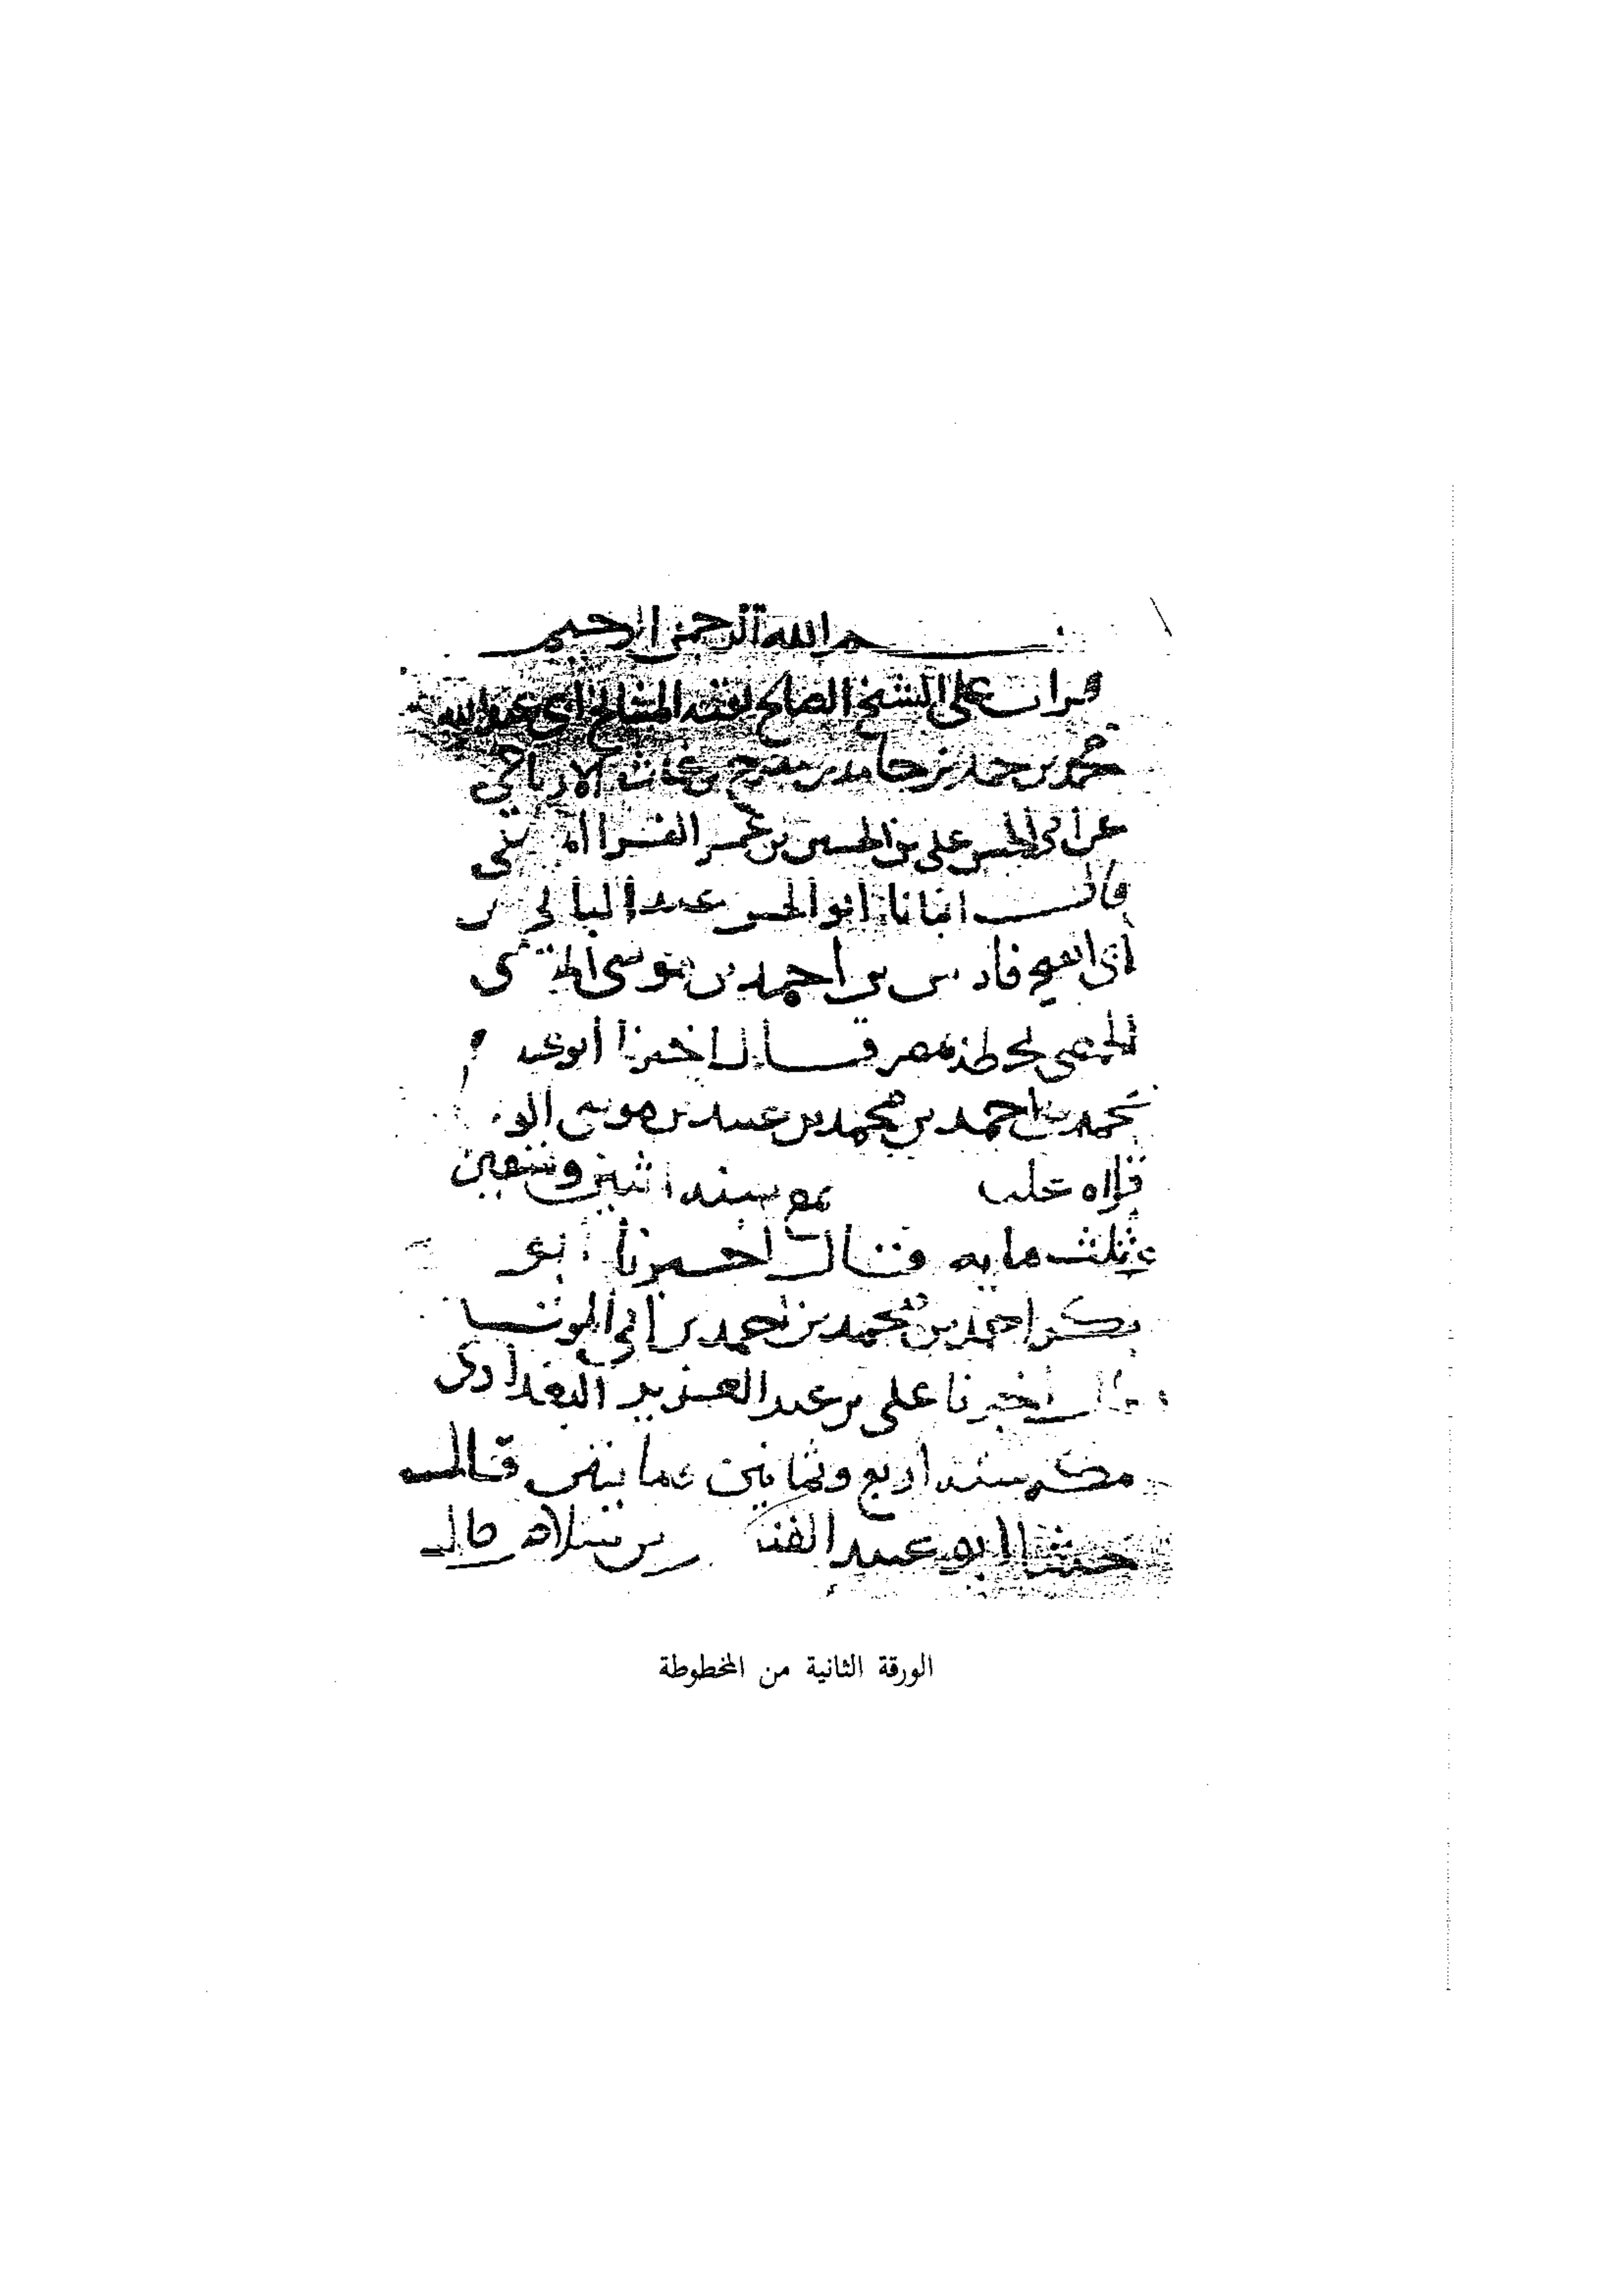 بسم الله الرحمن الرحيم
قرات على الشيخ الصالح بقية المشايخ ابي عبد الله
محمد بن حمد بن حامد بن مفرج بن غياث الارتاحي
عن ابي الحسن علي بن الحسين بن عمر الفرا
قال انبانا ابو الحسن عبد الباقي بن
ابي الفتح فارس بن احمد بن موسى
الحمصي بمصر قال اخبرنا ابو
محمد بن احمد بن محمد بن عبيد بن موسى
قراه عليه سنه اثنين وتسعين
وثلث مايه قال اخبرنا ابو
بكر احمد بن محمد بن احمد بن ابي الموت
قال اخبرنا علي بن عبد العزيز البغدادي
بمكه سنه اربع وثمانين وماتين قال
حدثنا ابو عبيد بن سلام قال
الورقة الثانية من المخطوطة